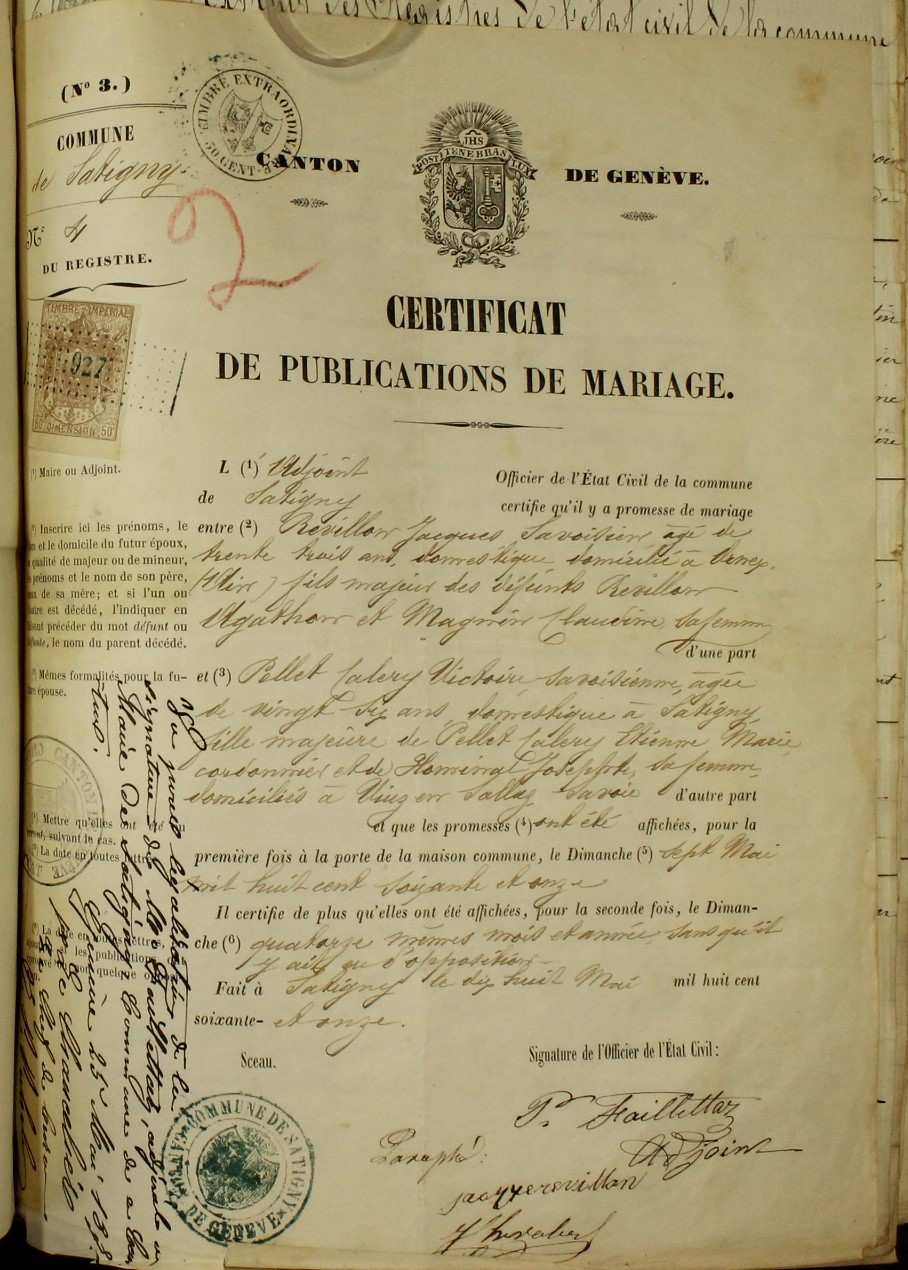 Extrait des Registres de l'état civil de la commune
(N° 3.)
COMMUNE
de Satigny
N° 4
DU REGISTRE.
TIMBRE EXTRAORDINAIRE
50 CENT.
CANTON DE GENÈVE.
JHS
POST TENEBRAS LUX
2
TIMBRE IMPÉRIAL
927
50 DIMENSION 50
CERTIFICAT
DE PUBLICATIONS DE MARIAGE.
(1) Maire ou Adjoint.
L (1) Adjoint Officier de l'État Civil de la commune
de Satigny certifie qu'il y a promesse de mariage
entre (2) Révillon Jacques Savoisien âgé de
trente trois ans, domestique domicilié à
fils majeur des défunts Révillon
Agathon et Magnin Claudine sa femme
d'une part
(2) Inscrire ici les prénoms, le
nom et le domicile du futur époux,
sa qualité de majeur ou de mineur,
les prénoms et le nom de son père,
ceux de sa mère; et si l'un ou
l'autre est décédé, l'indiquer en
faisant précéder du mot défunt ou
défunte, le nom du parent décédé.
(3) Mêmes formalités pour la fu-
ture épouse.
et (3) Pellet Calery Victoire Savoisienne, agée
de vingt six ans domestique à Satigny
fille majeure de Pellet Calery Etienne Marie
cordonnier et de Josephte, sa femme
domiciliés à Savoie d'autre part
et que les promesses (4) ont été affichées, pour la
première fois à la porte de la maison commune, le Dimanche (5) sept Mai
mil huit cent soixante et onze
Il certifie de plus qu'elles ont été affichées, pour la seconde fois, le Diman-
che (6) quatorze mêmes mois et année, sans qu'il
y ait eu d'opposition
Fait à Satigny le dix huit Mai mil huit cent
soixante- et onze.
(4) Mettre qu'elles ont été ou
suivant le cas.
(5) La date en toutes lettres
(6) La date en toutes lettres,
les publications
quelque
Vu pour légalisation de la
signature de Mr Faillettaz, adjoint
Maire de Satigny Commune de
Genève 25 Mai 18
Sceau.
Signature de l'Officier de l'État Civil:
Pr. Faillettaz
Adjoint
Paraphé:
jacque revillon
COMMUNE DE SATIGNY
CANTON DE GENÈVE